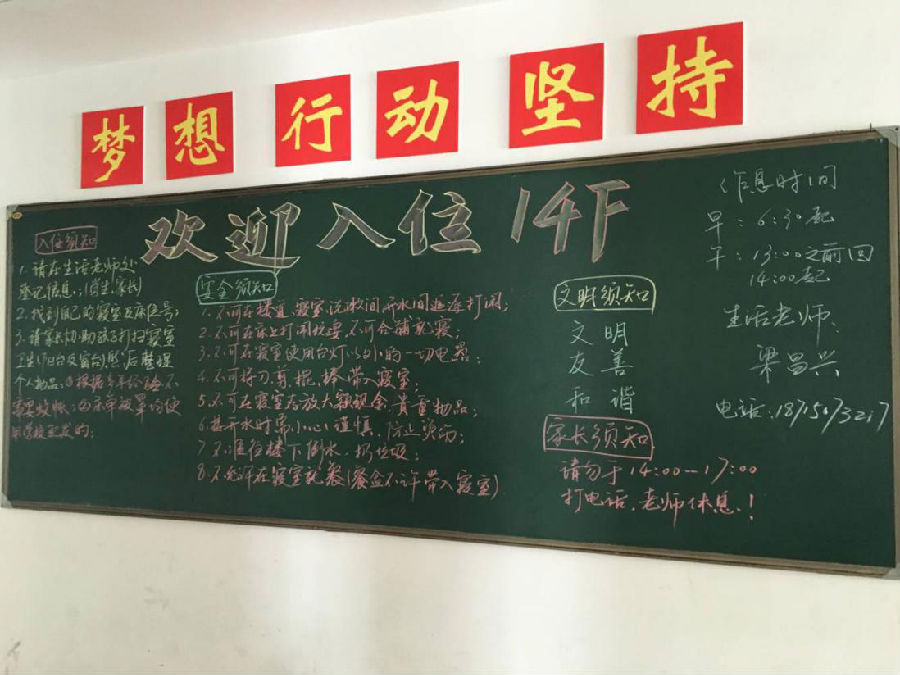 梦想 行动 坚持
欢迎入位14F
入住须知
1.请在生活老师处
登记信息,(学生、家长)
2.找到自己的寝室及床位号;
3.请家长协助孩子打扫寝室
卫生
整理
个人物品;
安全须知
1.不可在楼道、寝室、洗漱间、开水间追逐打闹;
2.不可在床上打闹玩耍,不可合铺就寝;
3.不可在寝室使用台灯以外的一切电器;
4.不可将刀、剪、棍、棒带入寝室;
5.不可在寝室存放大额现金、贵重物品;
6.提开水时需小心谨慎,防止烫伤;
7.不准往楼下倒水、扔垃圾;
8.不允许在寝室就餐(餐盒不许带入寝室)
文明须知
文明
友善
和谐
家长须知
请勿于14:00—17:00
打电话,老师休息!
作息时间
早:6:30起
午:13:00之前回
14:00起
生活老师:
梁昌兴
电话: